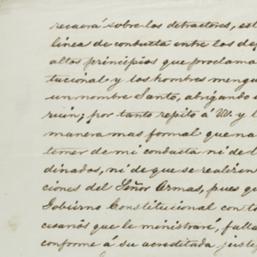 recaerá sobre los detractores, est
linea de conducta entre los dep
altos principios que proclama
tucional y los hombres mengu
un nombre Santo, abrigando
ruin; por tanto repito á VV. y l
manera mas formal que na
temer de mi conducta ni de l
dinados, ni de que se realicen
ciones del Señor Armas, pues qu
Gobierno Constitucional con to
cesarios que le ministraré, falta
conforme a su acreditada justi